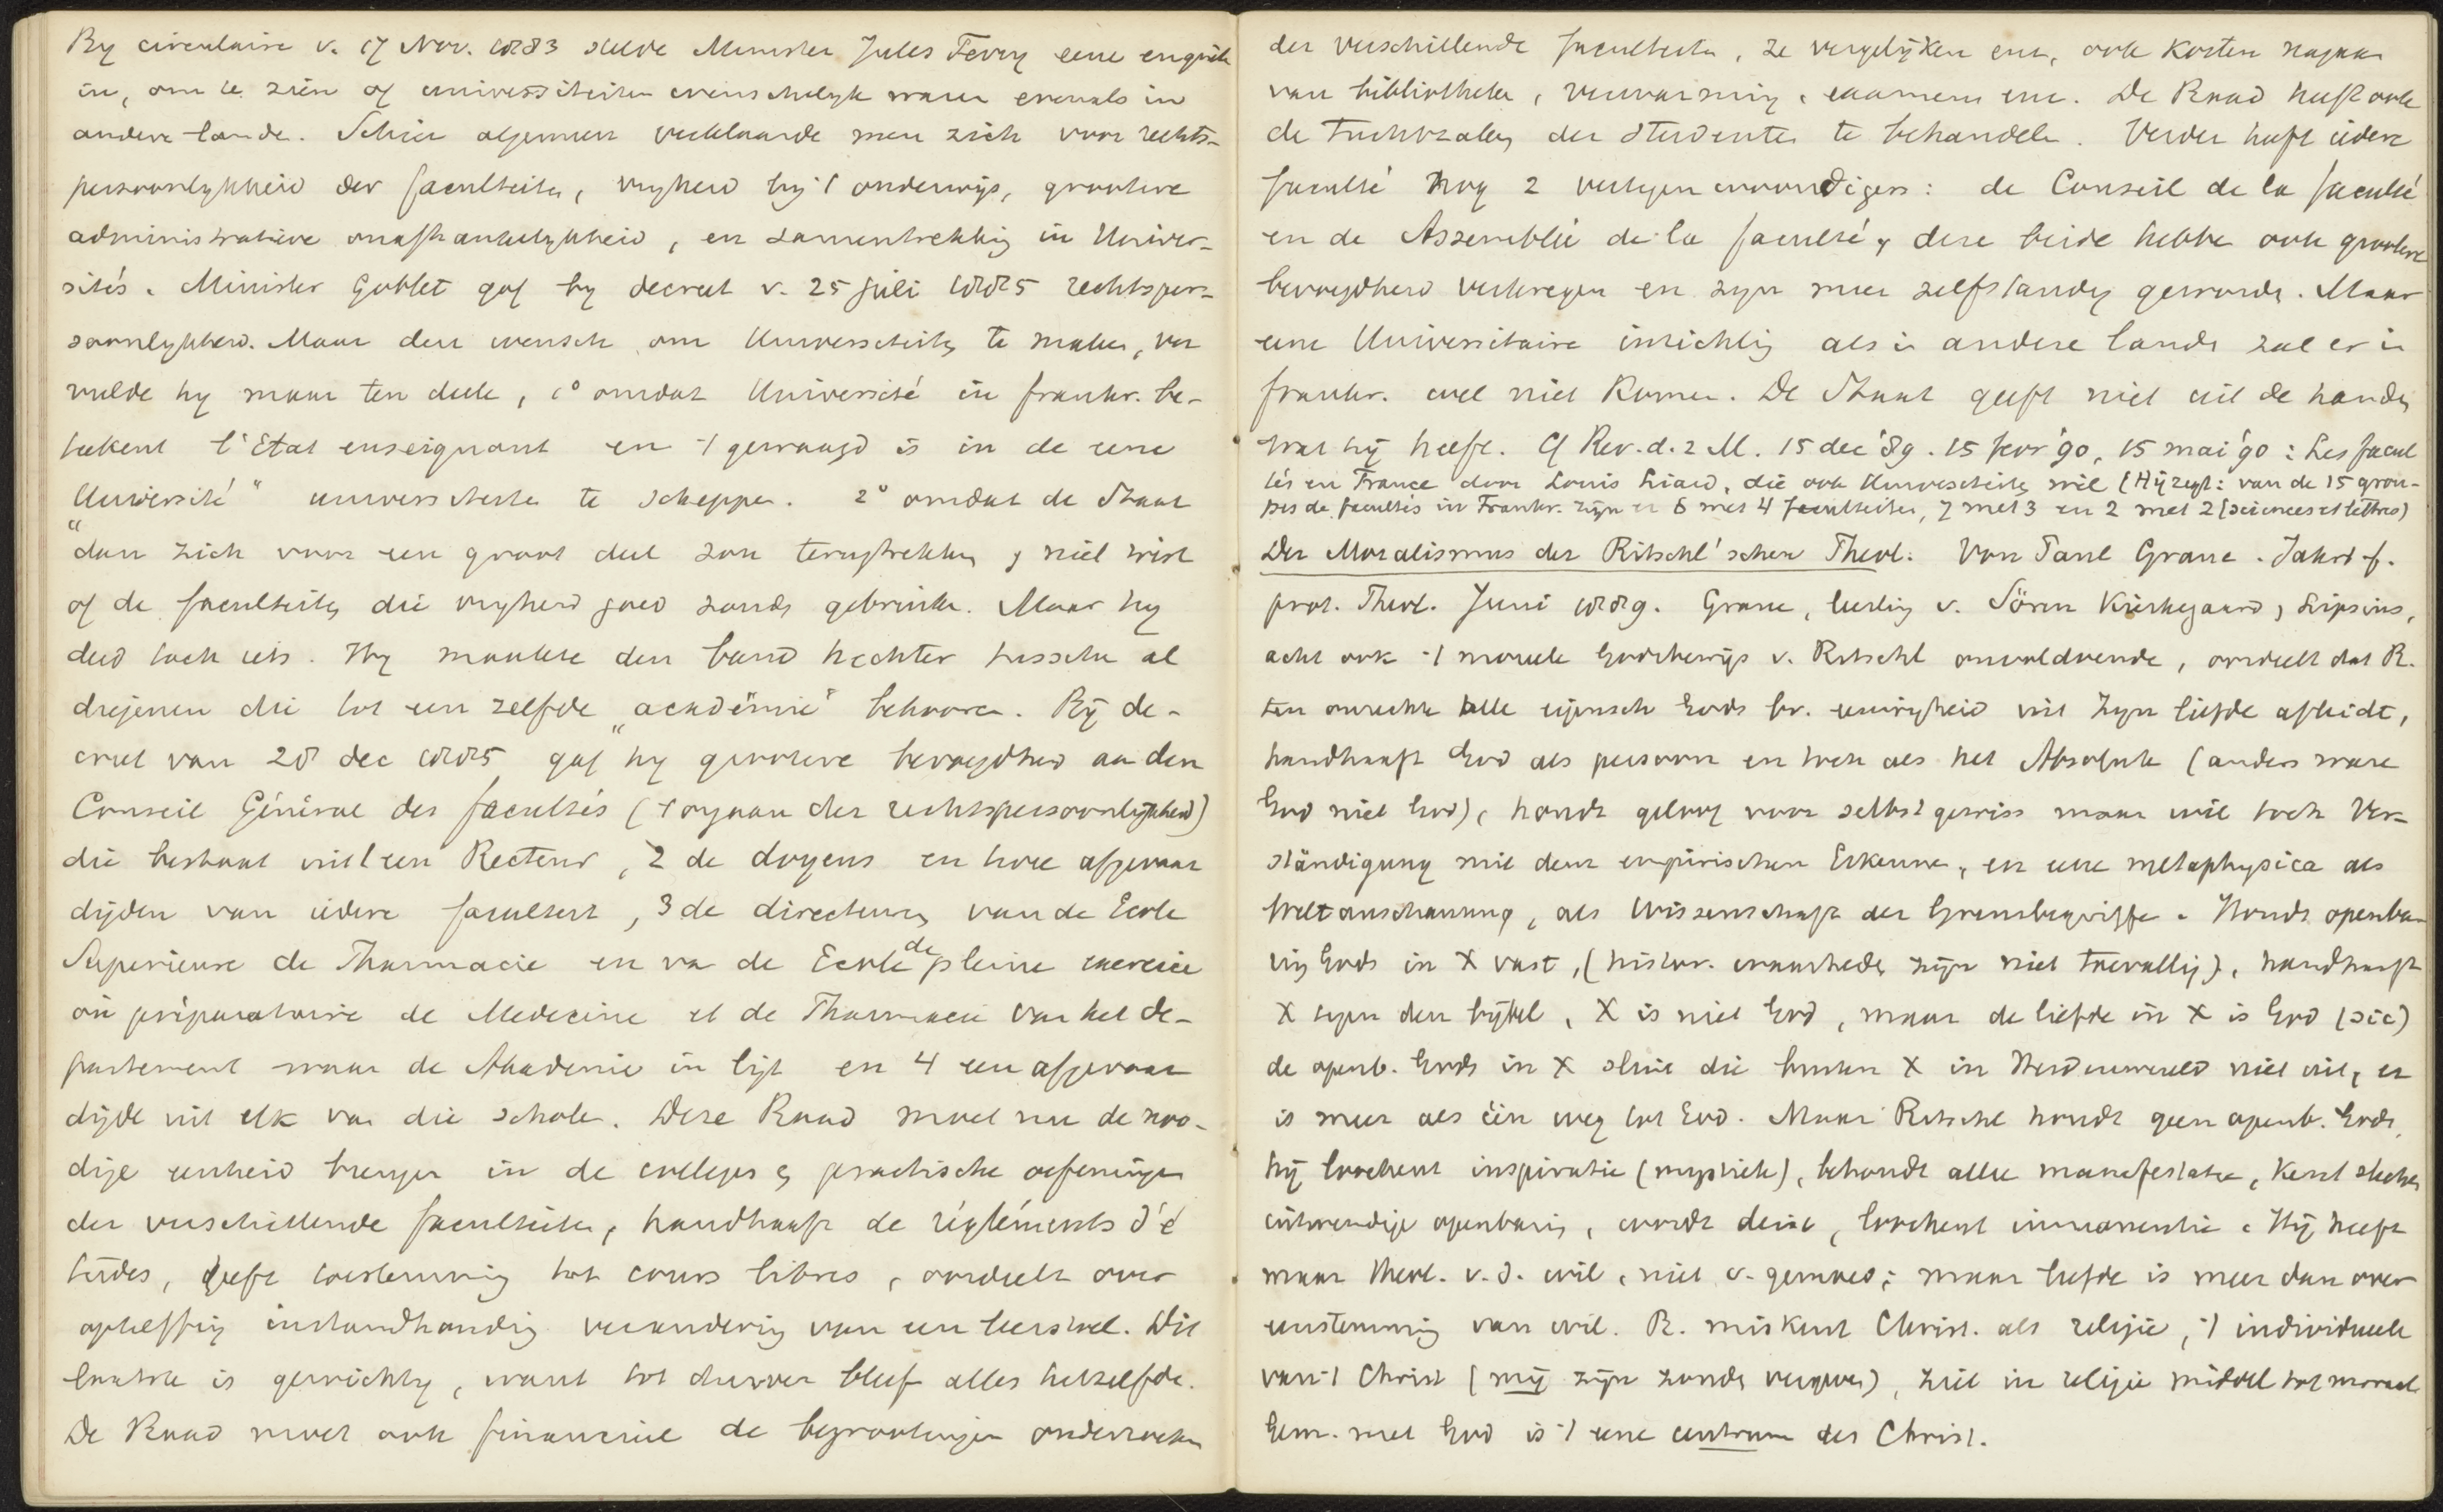 By circulaire v. 17 Nov. 1883 stelde Minister Jules Ferry eene enquête
in, om te zien of universiteiten wenschelyk waren evenals in
andere lande. Schier algemeen verklaarde men zich voor rechts-
persoonlykheid der faculteiten, vryheid bij 't onderwijs, grootere
administratieve onafhankelykheid, en samentrekking in Univer-
sités. Minister Goblet gaf by decreet v. 25 Juli 1885 rechtsper-
soonlykheid. Maar den wensch om Universiteiten te maken, ver
vulde hy maar ten deele, 1° omdat Université in frankr. be-
teekent l'Etat enseignant en 't gewaagd is in de eene
Université" universiteiten te scheppen. 2° omdat de Staat
"dan zich voor een groot deel zou terugtrekken, niet wist
of de faculteiten die vryheid goed zouden gebruiken. Maar hy
deed toch iets. Hy maakte den band hechter tusschen al
diegenen die tot een zelfde „académie" behooren. Bij de-
creet van 28 dec 1885 gaf hy grootere bevoegdheid aan den
Conseil Général des facultés ('t orgaan der rechtspersoonlijkheid)
die bestaat uit 1 een Recteur, 2 de doyens en twee afgevaar
digden van iedere faculteit, 3 de directeurs van de Ecole
Superieure de Pharmacie en van de Ecole de pleine exercice
ou préparatoire de Medecine et de Pharmacie van het de-
partement waar de Akademie in ligt en 4 een afgevaar
digde uit elk van die scholen. Deze Raad moet nu de noo-
dige eenheid brengen in de colleges en practische oefeningen
der verschillende faculteiten, handhaaft de règlements d'é
tudes, geeft toestemming tot cours libres, oordeelt over
opheffing instandhouding verandering van een leerstoel. Dit
laatste is gewichtig, want tot dusver bleef alles hetzelfde.
De Raad moet ook financieel de begrootingen onderzoeken
der verschillende faculteiten, ze vergelyken enz, ook kosten nagaan
van bibliotheken, verwarming, examens enz. De Raad heeft ook
de tuchtzaken der studenten te behandelen. Verder heeft iedere
faculté nog 2 vertegenwoordigers: de Conseil de la faculté
en de Assemblée de la faculté, deze beide hebben ook grootere
bevoegdheid verkregen en zyn meer zelfstandig geworden. Maar
eene Universitaire inrichting als in andere landen zal er in
frankr. wel niet komen. De Staat geeft niet uit de handen
wat hij heeft. Cf Rev. d. 2 M. 15 dec '89. 15 fevr '90, 15 mai '90: Les facul
tés en France door Louis Liard, die ook Universiteiten wil (Hij zegt: van de 15 grou-
pes de facultés in Frankr. zijn er 6 met 4 faculteiten, 7 met 3 en 2 met 2 (sciences et lettres)
Der Moralismus der Ritschl'schen Theol. Von Paul Graue. Jahrb f.
prot. Theol. Juni 1889. Graue, leerling v. Sören Kierkegaard, Lipsius,
acht ook 't moreele Godsbewijs v. Ritschl onvoldoende, oordeelt dat R.
ten onrechte alle eigensch Gods bv. eeuwigheid uit Zyn liefde afleidt,
handhaaft God als persoon en toch als het Absolute (anders ware
God niet God), houdt geloof voor selbstgewiss maar wil toch Ver-
ständigung mit dem empirischen Erkennen, en eene metaphysica als
Weltanschauung, als Wissenschaft der Grenzbegriffe. Houdt openba
ring Gods in X vast, (histor. waarheden zijn niet toevallig), handhaaft
X tegen den bijbel, X is niet God, maar de liefde in X is God (sic)
de openb. Gods in X sluit die buiten X in Heidenwereld niet uit, er
is meer als één weg tot God. Maar Ritschl houdt geen openb. Gods,
hij loochent inspiratie (mystiek), behoudt alleen manifestatie, kent slechts
uitwendige openbaring, wordt deist, loochent immanentie. Hij heeft
maar Theol. v. d. wil, niet v. gemoed; maar liefde is meer dan over
eenstemming van wil. R. miskent Christ. als religie, 't individueele
van 't Christ (mij zijn zonden vergeven), ziet in religie middel tot moraal
Gem. met God is 't eene centrum des Christ.